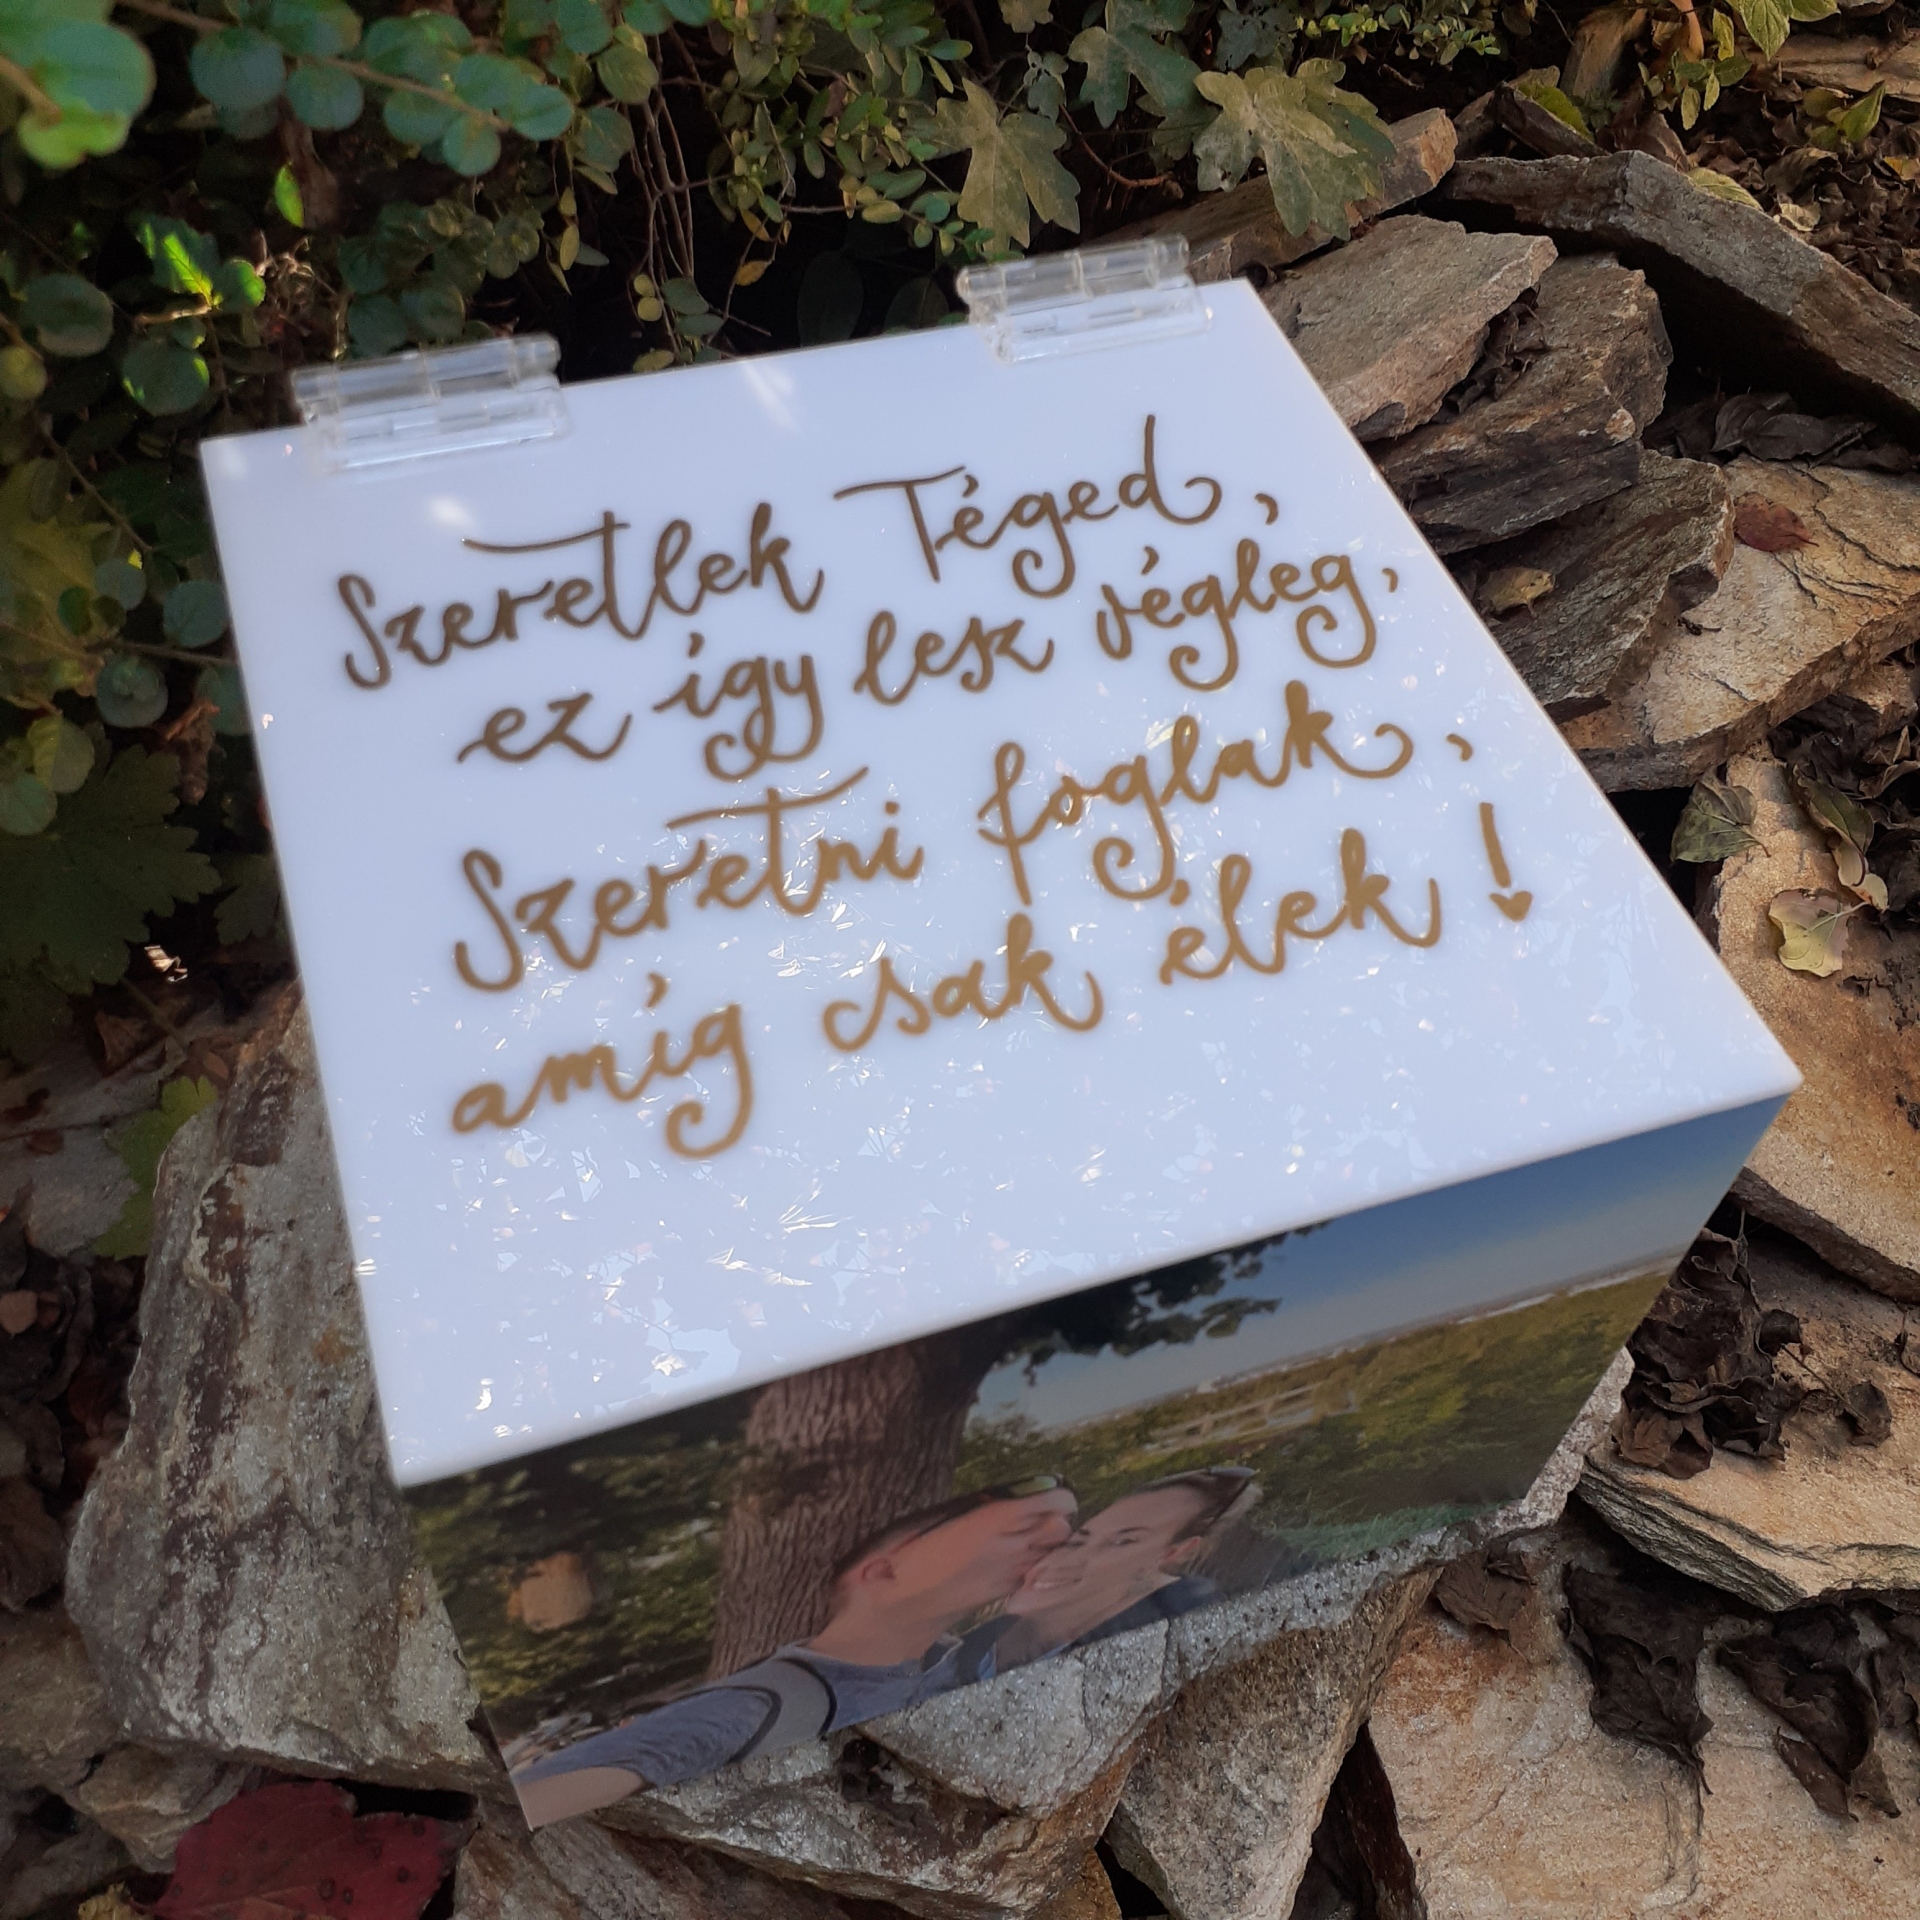 Szeretlek Téged,
ez így lesz végleg,
Szeretni foglak,
amíg csak élek!